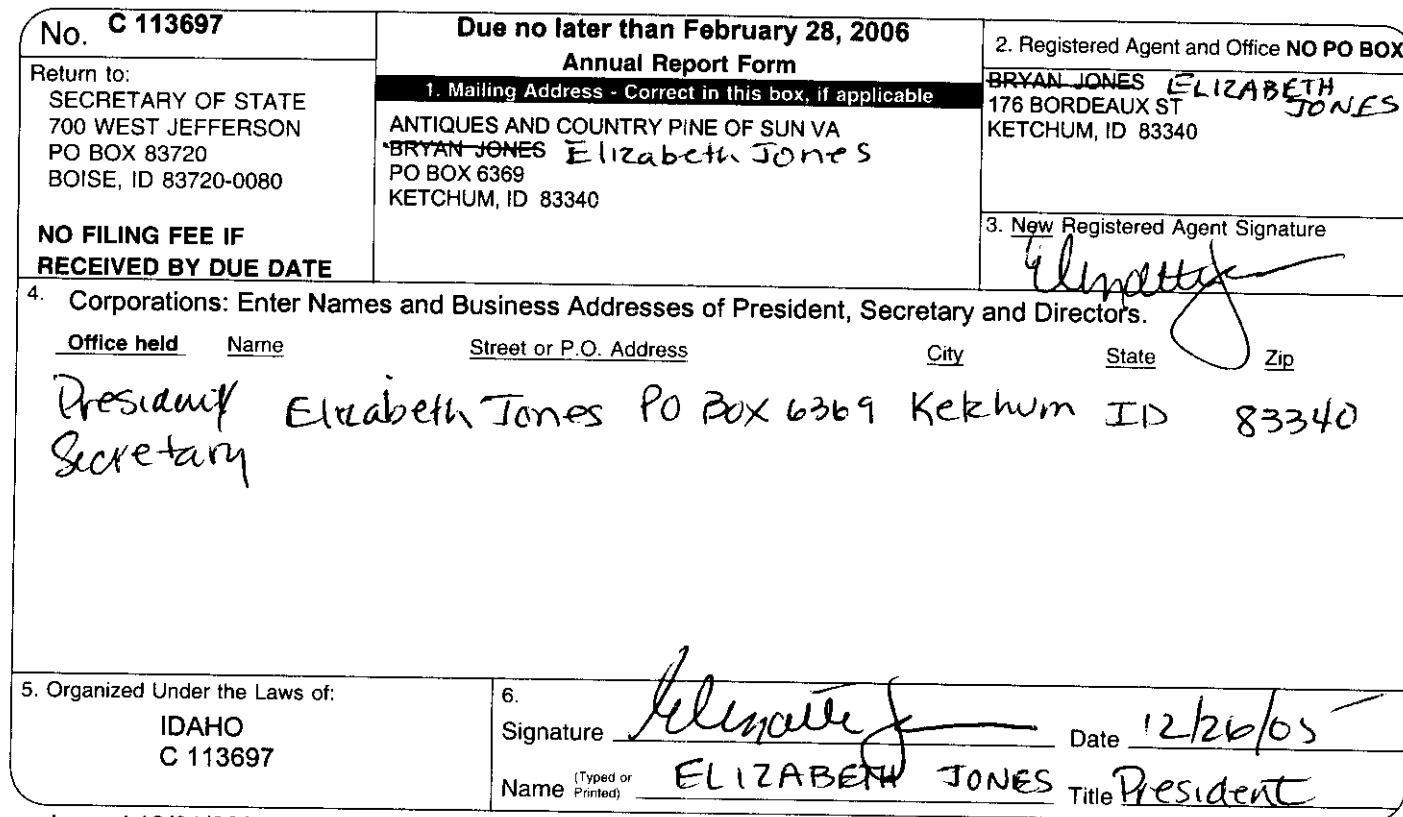 No. C 113697
Due no later than February 28, 2006
Annual Report Form
Return to:
SECRETARY OF STATE
700 WEST JEFFERSON
PO BOX 83720
BOISE, ID 83720-0080
NO FILING FEE IF
RECEIVED BY DUE DATE
1. Mailing Address - Correct in this box, if applicable
ANTIQUES AND COUNTRY PINE OF SUN VA
BRYAN JONES Elizabeth Jones
PO BOX 6369
KETCHUM, ID 83340
2. Registered Agent and Office NO PO BOX
BRYAN JONES ELIZABETH JONES
176 BORDEAUX ST
KETCHUM, ID 83340
3. New Registered Agent Signature
4. Corporations: Enter Names and Business Addresses of President, Secretary and Directors.
Office held Name Street or P.O. Address City State Zip
President/ Elizabeth Jones PO Box 6369 Ketchum ID 83340
Secretary
5. Organized Under the Laws of:
IDAHO
C 113697
6.
Signature Date 12/26/05
Name (Typed or Printed) ELIZABETH JONES Title President